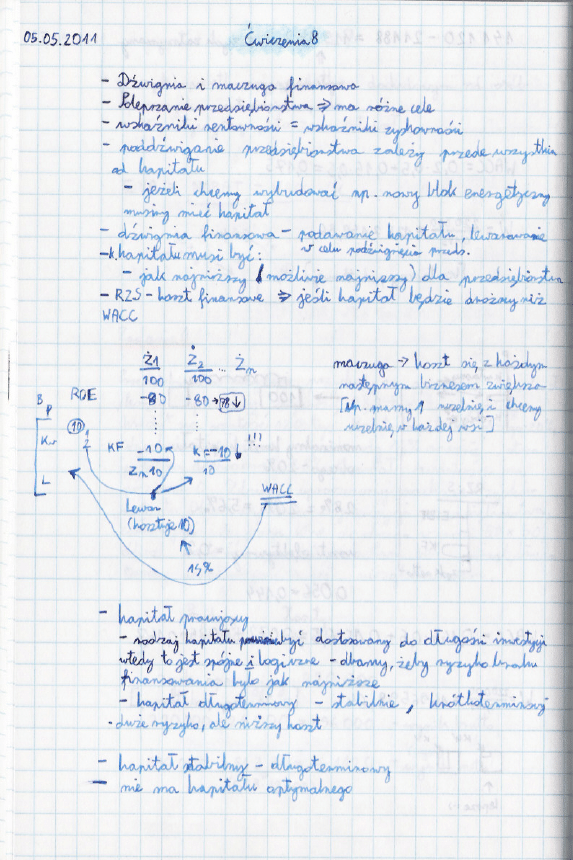 05.05.2011 Ćwiczenia 8
- Dźwignia i maczuga finansowa
- Polepszanie przedsiębiorstwa => ma różne cele
- wskaźniki rentowności = wskaźniki zyskowności
- poddźwiganie przedsiębiorstwa zależy przede wszystkim
od kapitału
- jeżeli chcemy wybudować np. nowy blok energetyczny
musimy mieć kapitał
- dźwignia finansowa - podawanie kapitału, lewarowanie
w celu podźwignięcia przeds.
- k. kapitału musi być:
- jak najniższy (możliwie najniższy) dla przedsiębiorstwa
- RZS - koszt finansowe => jeśli kapitał będzie droższy niż
WACC
Ż1 Ż2 ... Żn
100 100
-80 -80 → 78 ↓
maczuga → koszt się z każdym
następnym biznesem zwiększa
[np. mamy 1 uczelnię i chcemy
uczelnię w każdej wsi]
B
P
ROE
10
2
Kw
L
KF -10 K=-10 ↓ !!!
Zn 10 10
WACC
Lewar
(kosztuje 10)
15%
- kapitał pracujący
- rodzaj kapitału być dostosowany do długości inwestycji
wtedy to jest spójne i logiczne - dbamy, żeby ryzyko braku
finansowania było jak najniższe
- kapitał długoterminowy - stabilnie, krótkoterminowy
- duże ryzyko, ale niższy koszt
- kapitał stabilny - długoterminowy
- nie ma kapitału optymalnego